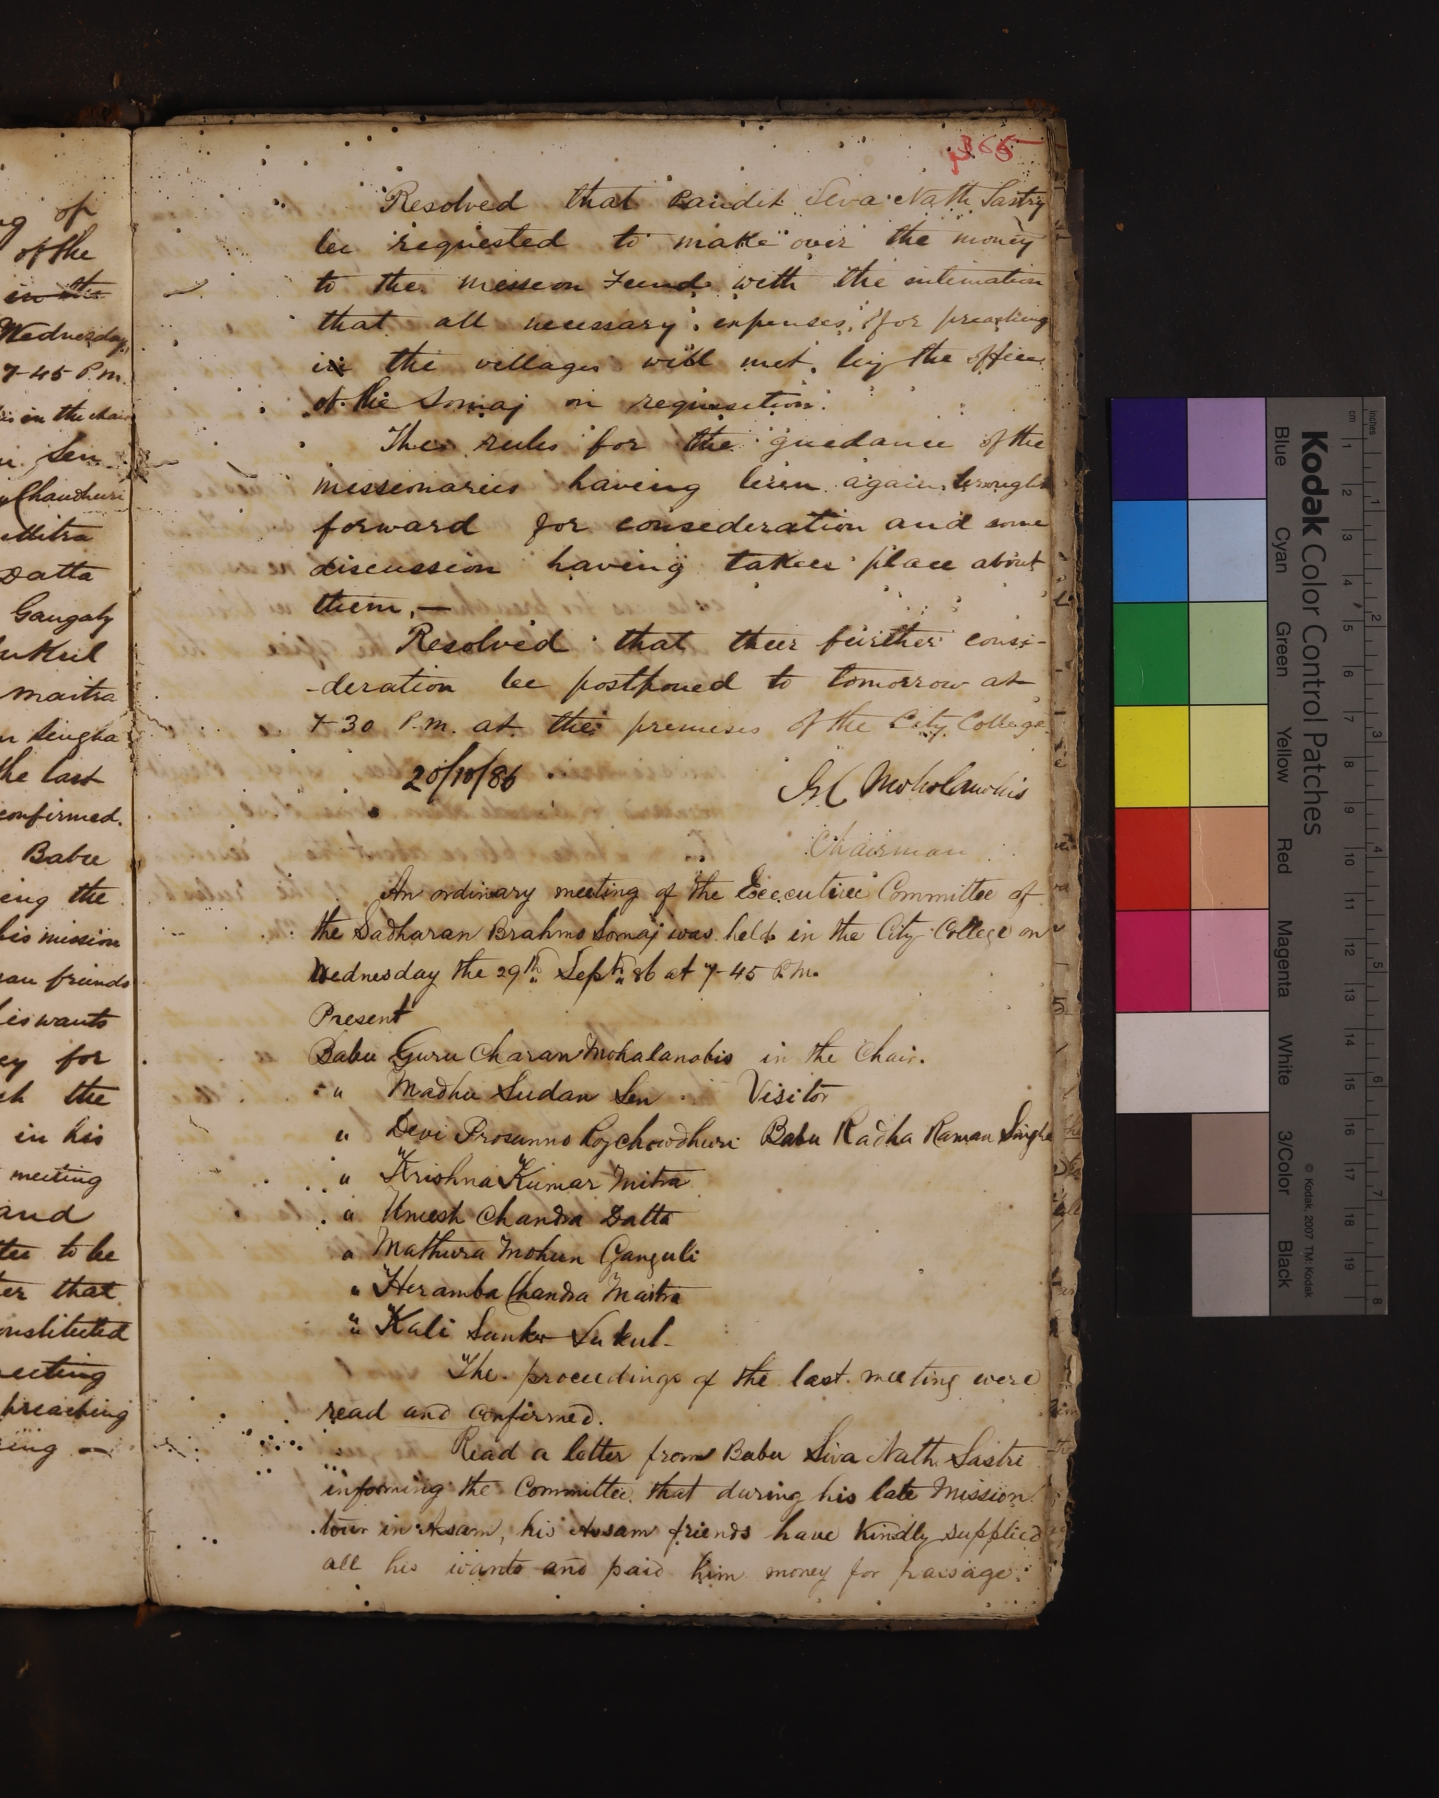 of
of the
in the
Wednesday,
7-45 P.m.
in the chair
Sen
Chaudhuri
Mitra
Datta
Gangaly
Sukul
maitra
Singha
the last
confirmed.
Babu
ing the
his mission
friends
his wants
for
the
in his
meeting
and
to be
that
constituted
meeting
preaching
365
Resolved that Pandit Siva Nath Sastry
be requested to make over the money
to the mission Fund with the intimation
that all necessary expenses, for preaching
in the villages will met, by the office
of the Somaj on requisition.
The rules for the guidance of the
missionaries having been again brought
forward for consideration and some
discussion having taken place about
them,—
Resolved that their further consi-
-deration be postponed to tomorrow at
7-30 P.M. at the premises of the City College
20/10/86
G C Moholanobis
Chairman
An ordinary meeting of the Executive Committee of
the Sadharan Brahmo Somaj was held in the City College on
Wednesday the 29th Septr 86 at 7-45 P.M.
Present
Babu Guru Charan Mohalanobis in the Chair.
" Madhu Sudan Sen Visitor
" Devi Prosunno Roychowdhuri Babu Radha Raman Singha
" Krishna Kumar Mitra
" Umesh Chandra Datta
" Mathura Mohun Ganguli
" Heramba Chandra Maitra
" Kali Sunker Sukul-
The proceedings of the last meeting were
read and confirmed.
Read a letter from Babu Siva Nath Sastri
informing the Committee that during his late Mission
tour in Asam, his Assam friends have kindly supplied
all his wants and paid him money for passage.
Kodak Color Control Patches
Blue Cyan Green Yellow Red Magenta White 3/Color Black
© Kodak, 2007 TM: Kodak
inches
cm
1 2 3 4 5 6 7 8
1 2 3 4 5 6 7 8 9 10 11 12 13 14 15 16 17 18 19